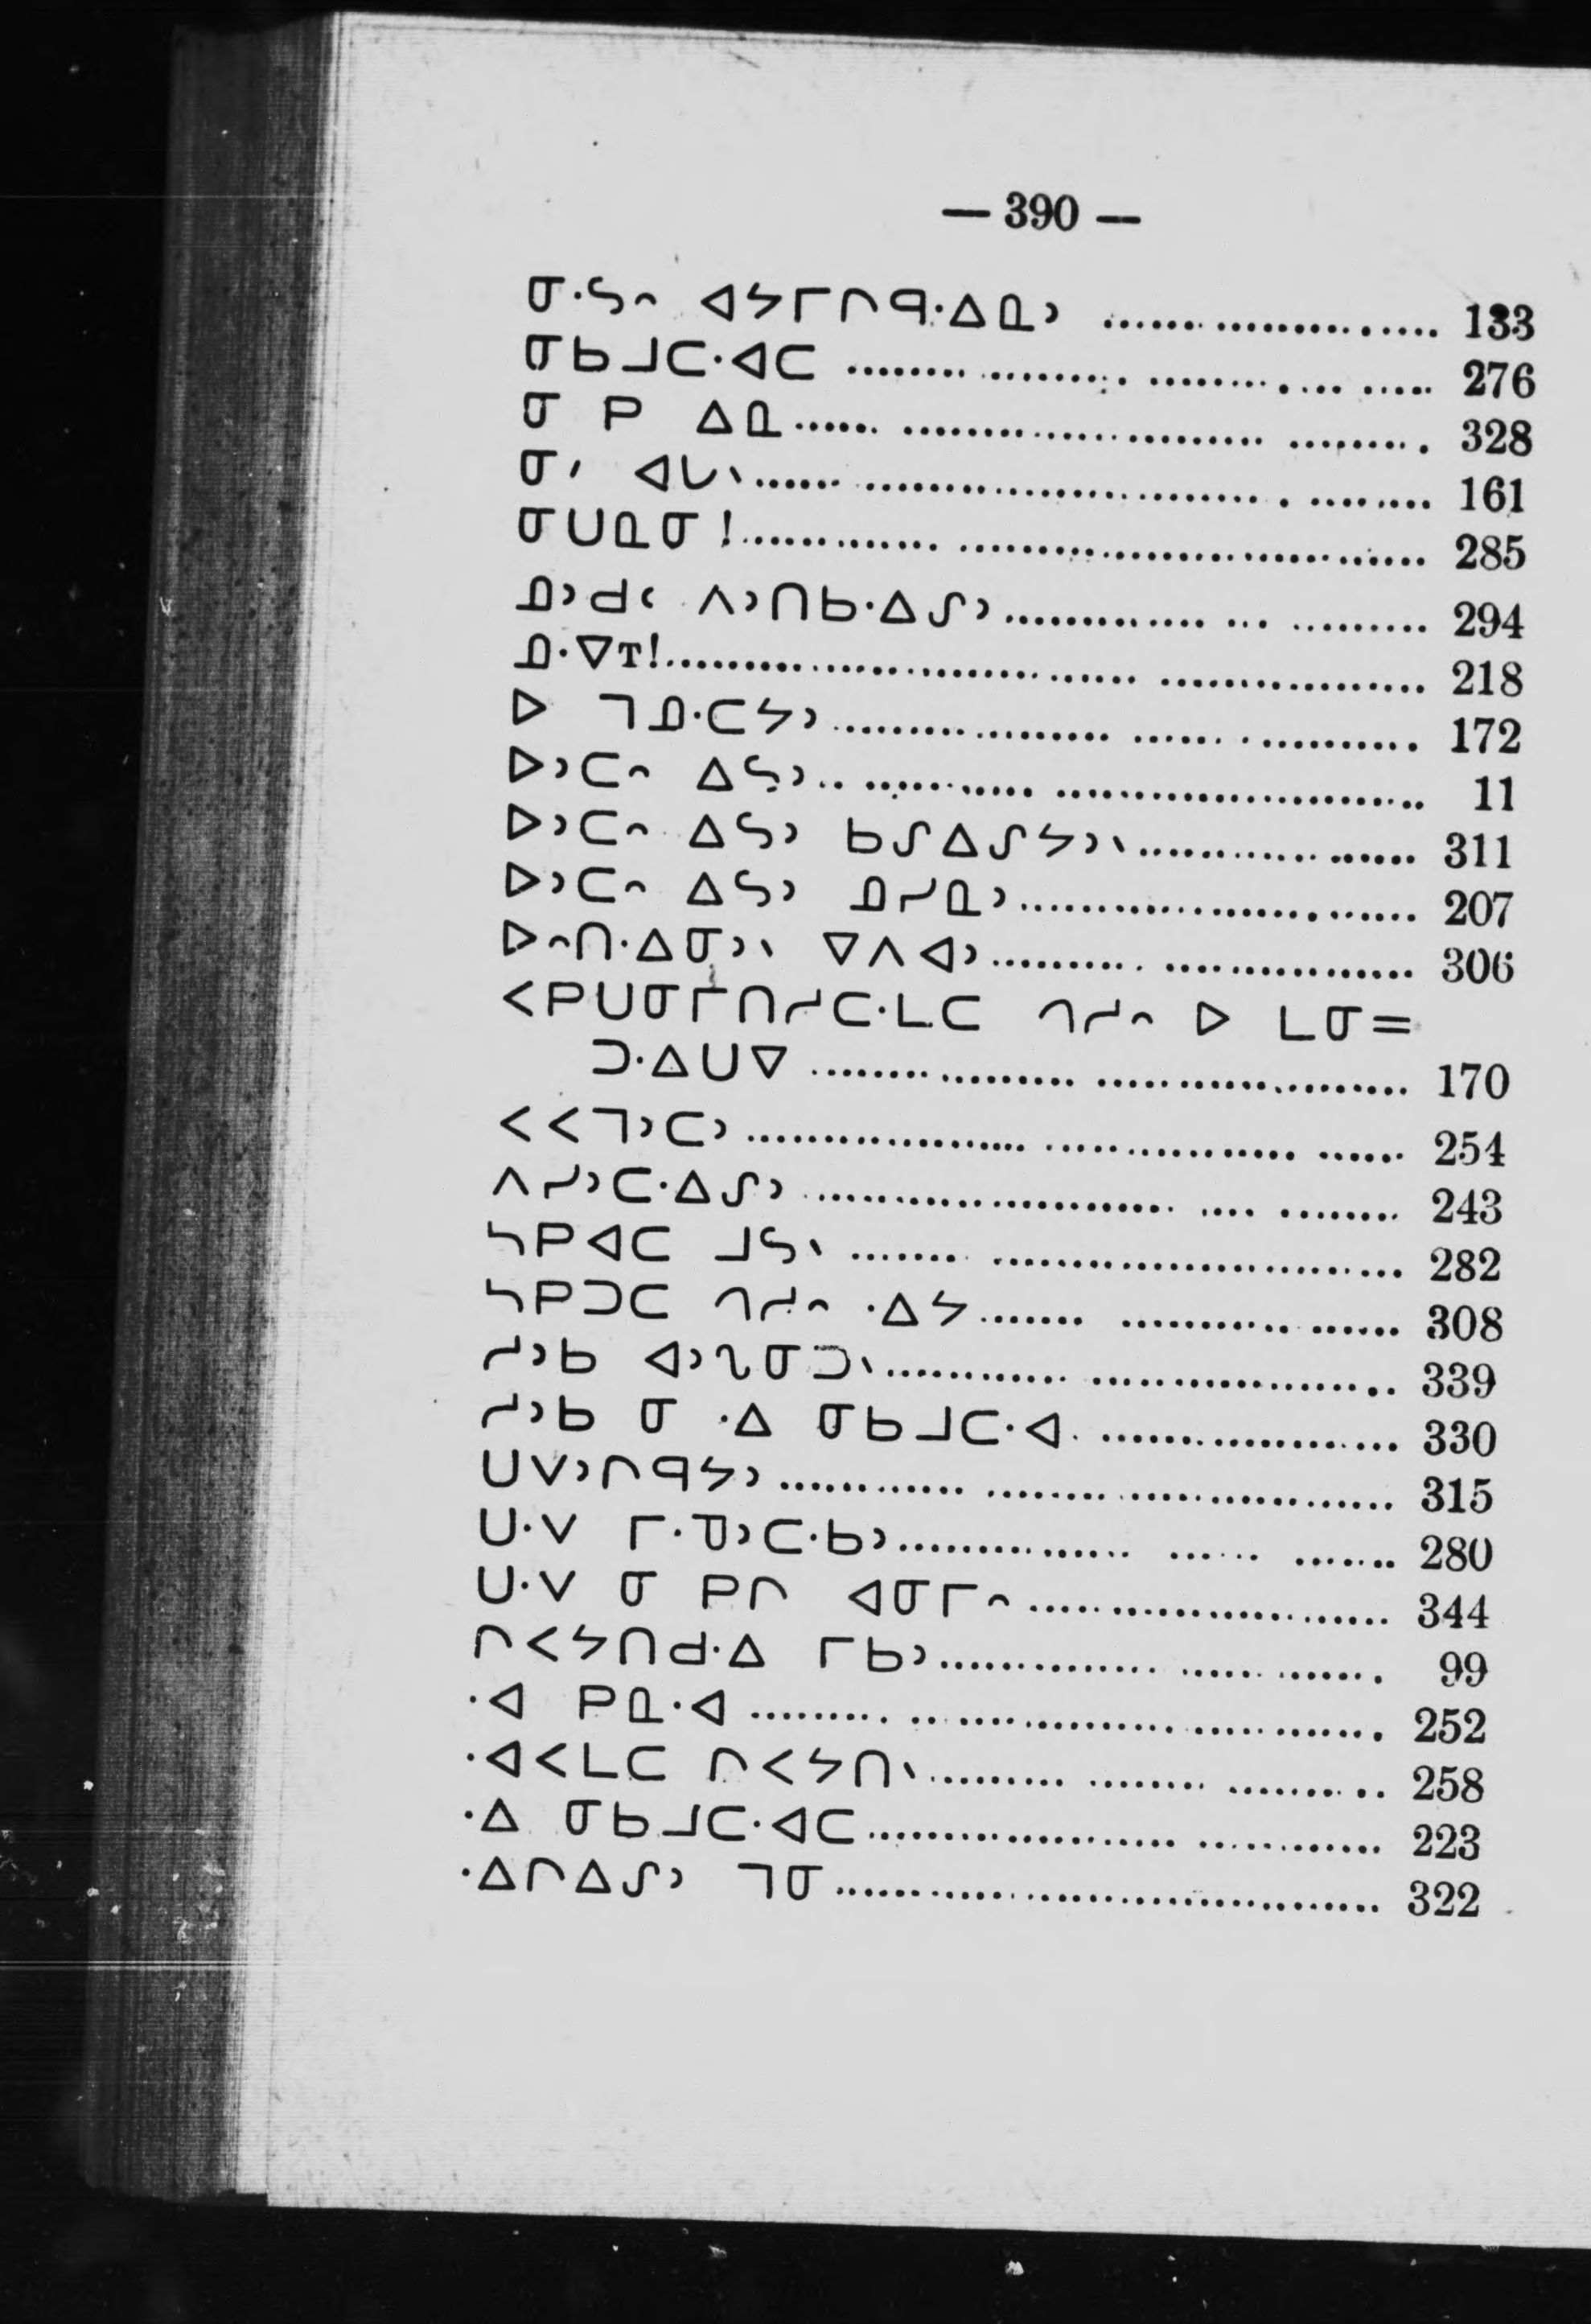 — 390 —
ᓂ·ᔕᐢ ᐊᔭᒥᒋᑫ·ᐃᓇᐣ ........................ 133
ᓂᑲᒧᑕ·ᐊᑕ ........................ 276
ᓂ ᑭ ᐃᓇ ........................ 328
ᓂᐟ ᐊᒐᐠ ........................ 161
ᓂᑌᓇᓂ ! ........................ 285
ᓄᐣᑯᒼ ᐱᐣᑎᑲ·ᐃᔑᐣ ........................ 294
ᓄ·ᐁT! ........................ 218
ᐅ ᒣᓄ·ᑕᔭᐣ ........................ 172
ᐅᐣᑕᐢ ᐃᔕᐣ ........................ 11
ᐅᐣᑕᐢ ᐃᔕᐣ ᑲᔑᐃᔑᔭᐣᐠ ........................ 311
ᐅᐣᑕᐢ ᐃᔕᐣ ᓄᓯᓇᐣ ........................ 207
ᐅᐢᑎ·ᐃᓂᐣᐠ ᐁᐱᐊᐣ ........................ 306
ᐸᑭᑌᓂᒥᑎᓱᑕ·ᒪᑕ ᒉᓱᐢ ᐅ ᒪᓂ=
ᑐ·ᐃᑌᐁ ........................ 170
ᐸᐸᒣᐣᑕᐣ ........................ 254
ᐱᓯᐣᑕ·ᐃᔑᐣ ........................ 243
ᓴᑭᐊᑕ ᒧᔕᐠ ........................ 282
ᓴᑭᑐᑕ ᒉᓱᐢ ·ᐃᔭ ........................ 308
ᓱᐣᑲ ᐊᐣᔐᓂᑐᐠ ........................ 339
ᓱᐣᑲ ᓂ ·ᐃ ᓂᑲᒧᑕ·ᐊ ........................ 330
ᑌᐯᐣᒋᑫᔭᐣ ........................ 315
ᑌ·ᐯ ᒥ·ᓀᐣᑕ·ᑲᐣ ........................ 280
ᑌ·ᐯ ᓂ ᑭᒋ ᐊᓂᒥᐢ ........................ 344
ᒋᐸᔭᑎᑯ·ᐃ ᒥᑲᐣ ........................ 99
·ᐊ ᑭᓇ·ᐊ ........................ 252
·ᐊᐸᒪᑕ ᒋᐸᔭᑎᐠ ........................ 258
·ᐃ ᓂᑲᒧᑕ·ᐊᑕ ........................ 223
·ᐃᒋᐃᔑᐣ ᒣᓂ ........................ 322